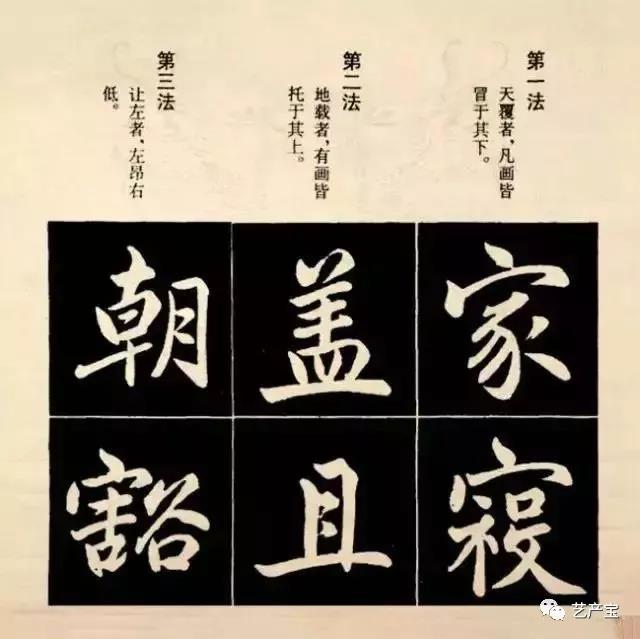 第一法
天覆者，凡画皆
冒于其下。
第二法
地载者，有画皆
托于其上。
第三法
让左者，左昂右
低。
家
盖
且
朝
豁
艺产宝